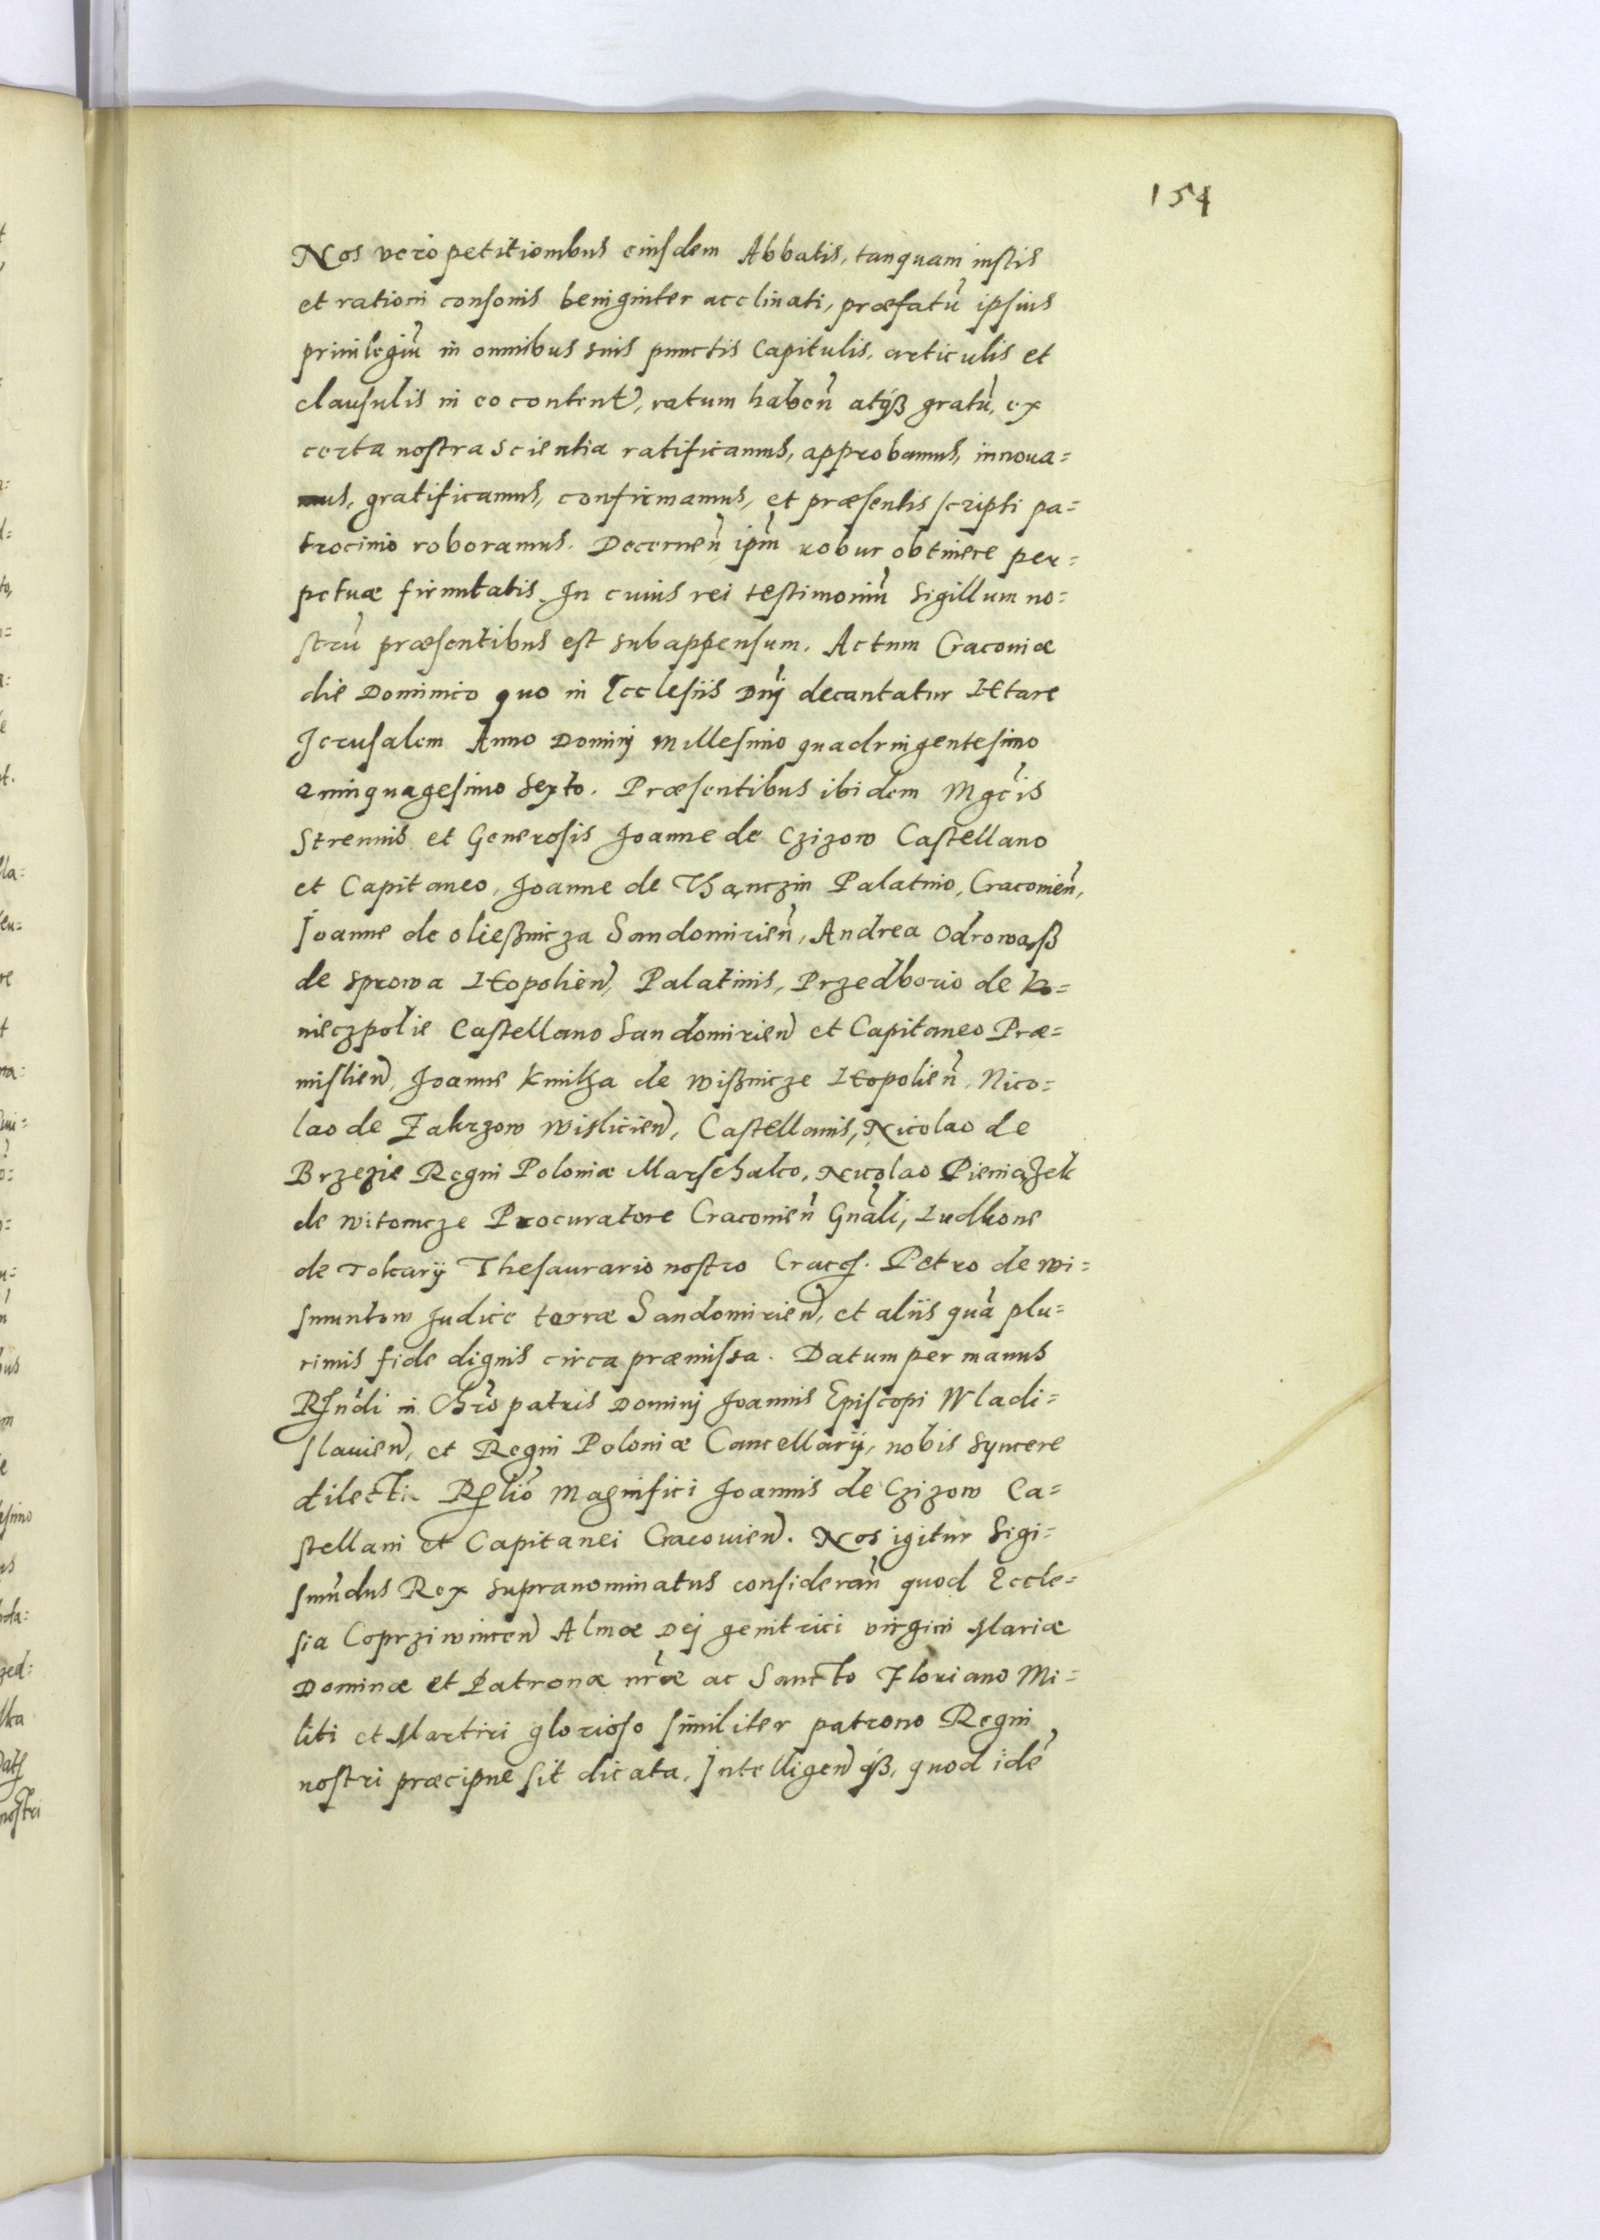 154
Nos vero petitionibus eiusdem Abbatis, tanquam iustis
et rationi consonis benigniter acclinati, præfatũ ipsius
priuilegiũ in omnibus suis punctis Capitulis, articulis et
clausulis in eo content, ratum habeñ atqß gratũ, ex
certa nostra scientia ratificamus, approbamus, innoua=
mus, gratificamus, confirmamus, et præsentis scripti pa=
trocinio roboramus. Decerneñ ipm̃ robur obtinere per=
petuæ firmitatis. In cuius rei testimoniũ Sigillum no=
strũ præsentibus est subappensum. Actum Cracouiæ
die Dominico quo in Ecclesiis Dnj decantatur Lętare
Jerusalem Anno Dominj Millesimo quadringentesimo
quinquagesimo Sexto. Præsentibus ibidem Mgcis
Strenuis et Generosis Joanne de Czizow Castellano
et Capitaneo, Joanne de Thanczin Palatino, Cracouieñ,
Joanne de oließnicza Sandomirieñ, Andrea Odrowąß
de Sprowa Lęopolień, Palatinis, Przedborio de Ko=
nieczpolie Castellano Sandomirieñ et Capitaneo Præ=
mislieñ, Joanne Kmitha de Wißnicze Lęopolieñ, Nico=
lao de Zakrzow Wislicieñ, Castellanis, Nicolao de
Brzezie Regni Poloniæ Marschalco, Nicolao Pieniążek
de Witowicze Procuratore Cracouieñ Gnãli, Ludkone
de Tokarÿ Thesaurario nostro Petro de Wi=
smuntow Judice terræ Sandomirieñ, et aliis quã plu=
rimis fide dignis circa præmissa. Datum per manus
Rndi in Chrõ patris Dominj Joannis Episcopi Wladi=
slauieñ, et Regni Poloniæ Cancellarÿ, nobis Syncere
dilecti. Magnifici Joannis de Czizow Ca=
stellani et Capitanei Cracouieñ. Nos igitur Sigi=
smũdus Rex supranominatus considerañ quod Eccle=
sia Coprziwniceñ Almæ Dej genitrici virgini Mariæ
Dominæ et Patronæ nræ ac Sancto Floriano Mi=
liti et Martiri glorioso similiter patrono Regni
nostri præcipue sit dicata. Intelligeñ qß, quod idẽ